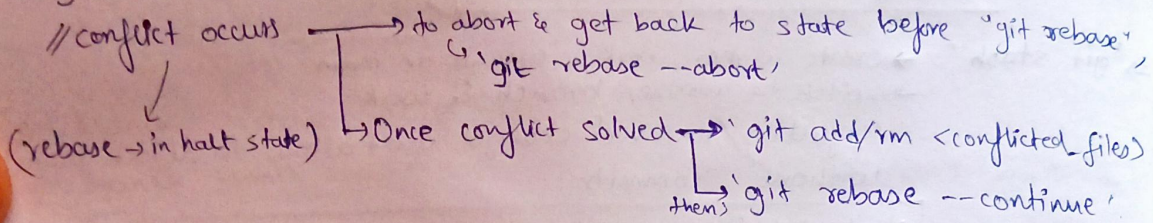 // conflict occurs → to abort & get back to state before "git rebase",
↳ 'git rebase --abort'
(rebase → in halt state) ↳ Once conflict solved → 'git add/rm <conflicted_files>
then; ↳ 'git rebase --continue'